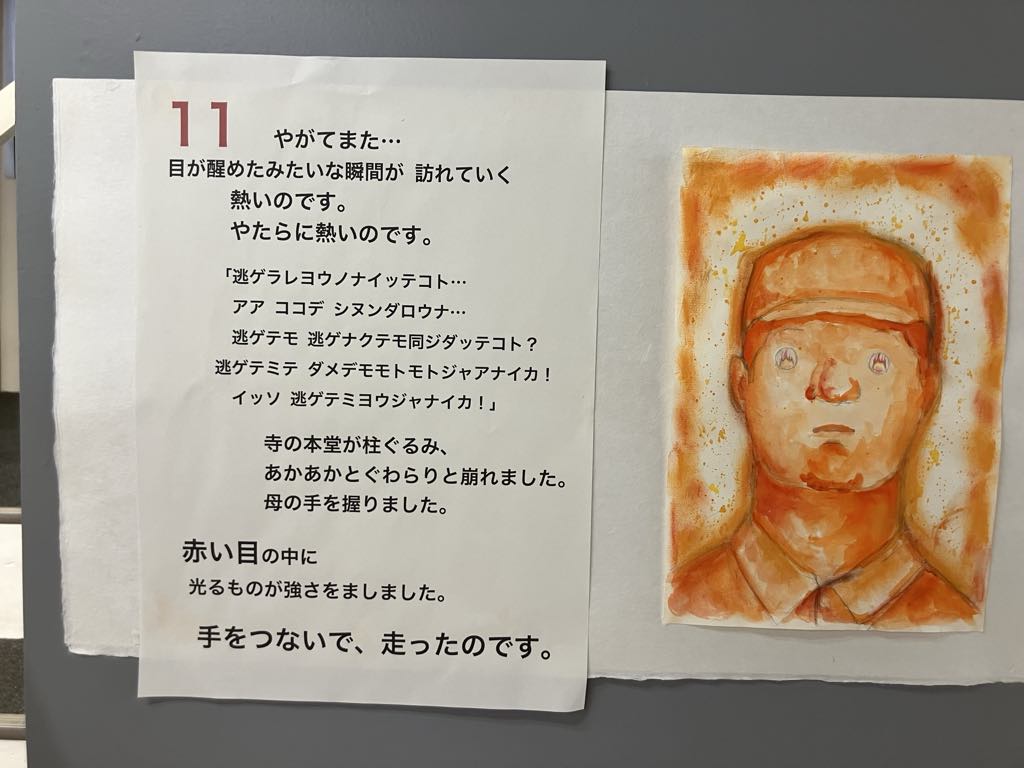 11 やがてまた…
目が醒めたみたいな瞬間が 訪れていく
熱いのです。
やたらに熱いのです。
「逃ゲラレヨウノナイッテコト…
アア ココデ シヌンダロウナ…
逃ゲテモ 逃ゲナクテモ同ジダッテコト？
逃ゲテミテ ダメデモモトモトジャアナイカ！
イッソ 逃ゲテミヨウジャナイカ！」
寺の本堂が柱ぐるみ、
あかあかとぐわらりと崩れました。
母の手を握りました。
赤い目の中に
光るものが強さをましました。
手をつないで、走ったのです。